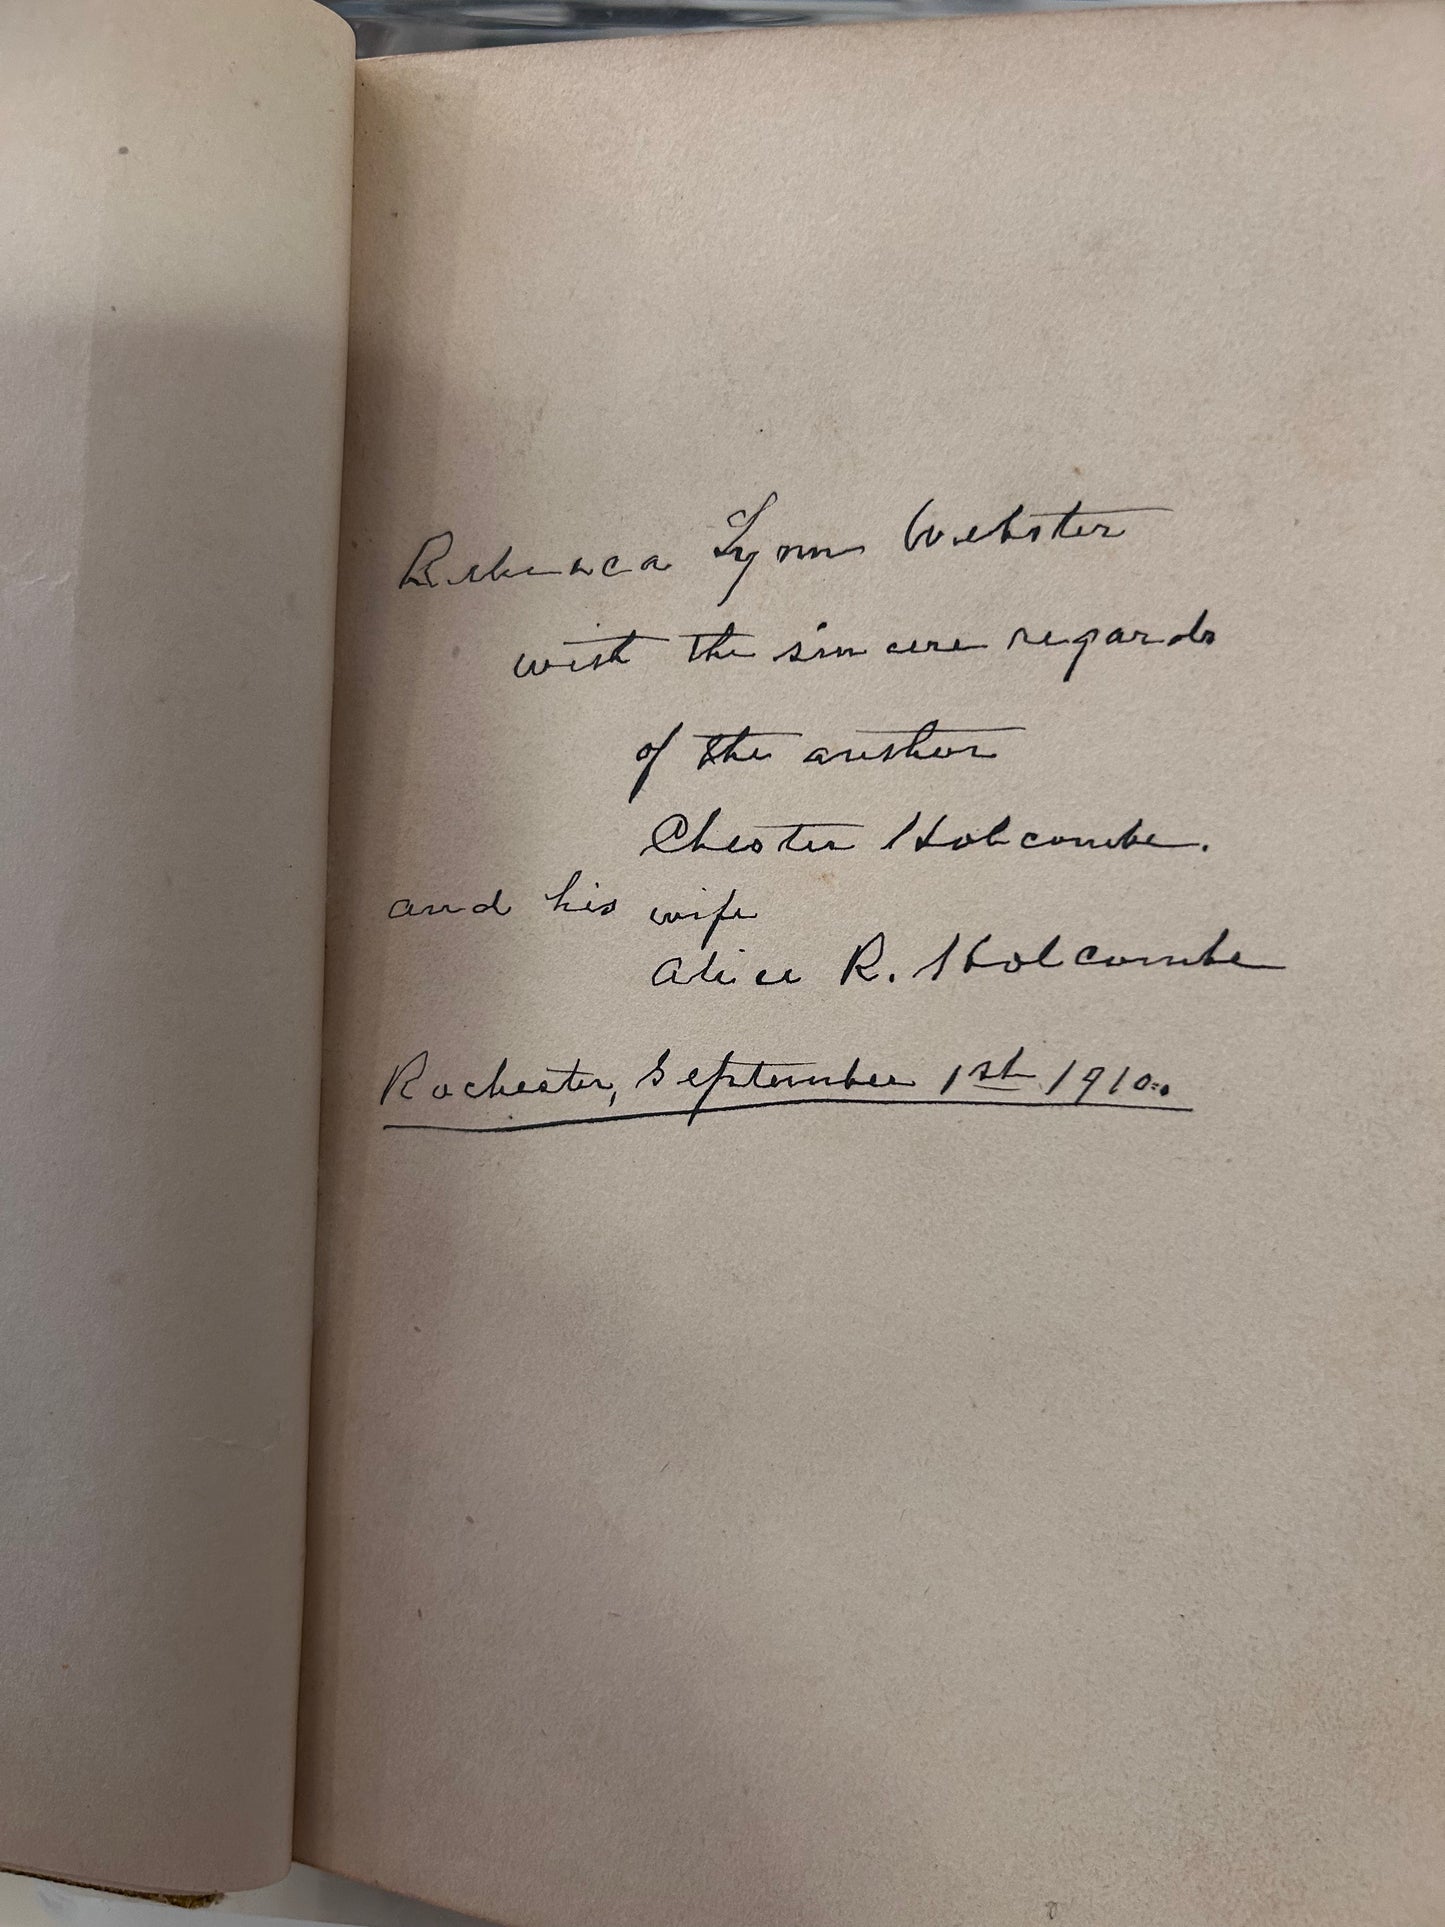 Rebecca Lynn Webster
with the sincere regards
of the author
Chester Holcombe.
and his wife
Alice R. Holcombe
Rochester, September 1st 1910.